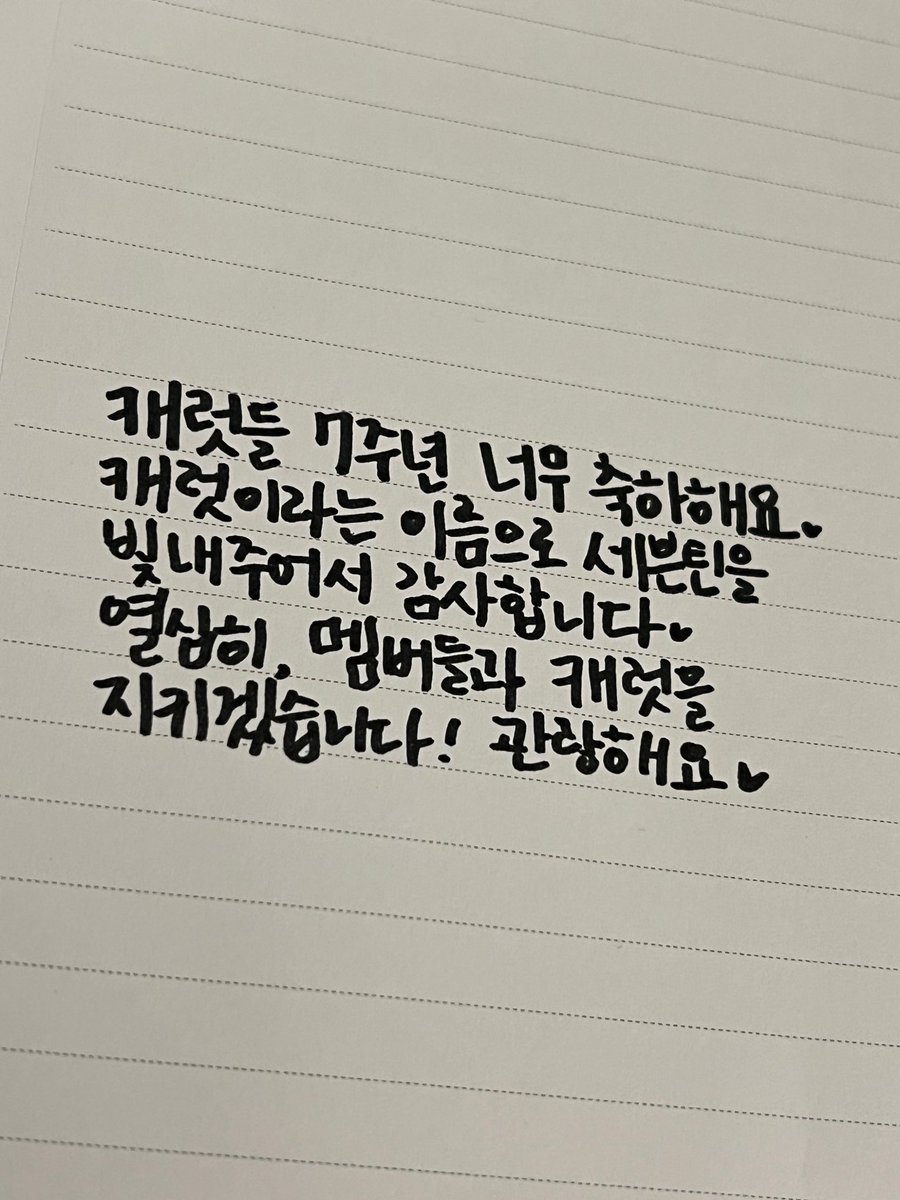 캐럿들 7주년 너무 축하해요♥
캐럿이라는 이름으로 세븐틴을
빛내주어서 감사합니다♥
열심히, 멤버들과 캐럿을
지키겠습니다! 관랑해요♥